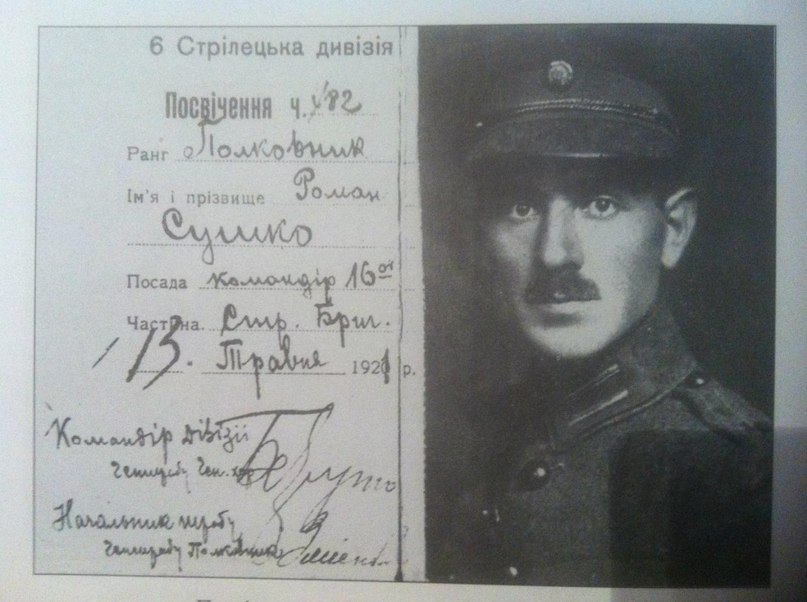 6 Стрілецька дивізія
Посвічення ч. 82
Ранг Полковник
Ім'я і прізвище Роман
Сушко
Посада командір 16ої
Частина Стр. Бриг.
13. Травня 1921 р.
Командір дівізії
Ген.
Начальник штабу
Генштабу Полковник